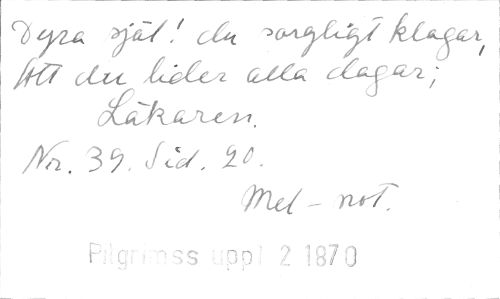 Dyra själ! du sorgligt klagar,
Att du lider alla dagar;
Läkaren.
Nr. 39. Sid. 20.
Mel-not.
Pilgrimss uppl 2 1870